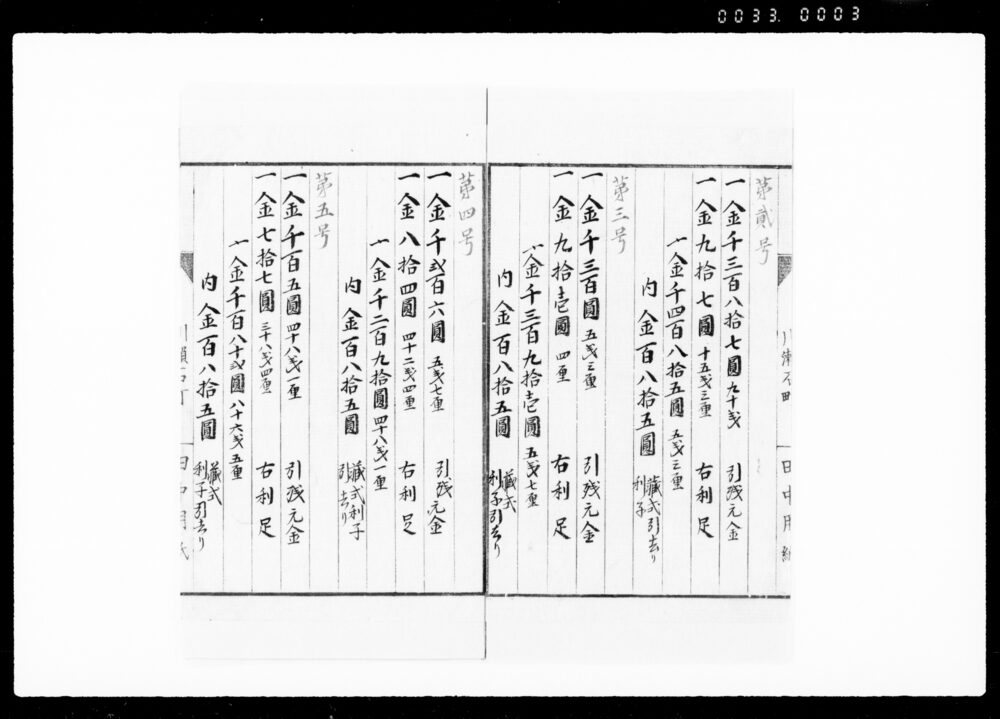 0033. 0003
第貳号
一金千三百八拾七圓九十戋 引残元金
一金九拾七圓十五戋三厘 右利足
〆金千四百八拾五圓五戋三厘
内金百八拾五圓 蔵式引去り利子
第三号
一金千三百圓五戋三厘 引残元金
一金九拾壱圓四厘 右利足
〆金千三百九拾壱圓五戋七厘
内金百八拾五圓 蔵式利子引去り
第四号
一金千弐百六圓五戋七厘 引残元金
一金八拾四圓四十二戋四厘 右利足
〆金千二百九拾圓四十八戋一厘
内金百八拾五圓 蔵式利子引去り
第五号
一金千百五圓四十八戋一厘 引残元金
一金七拾七圓三十八戋四厘 右利足
〆金千百八十弐圓八十六戋五厘
内金百八拾五圓 蔵式利子引去り